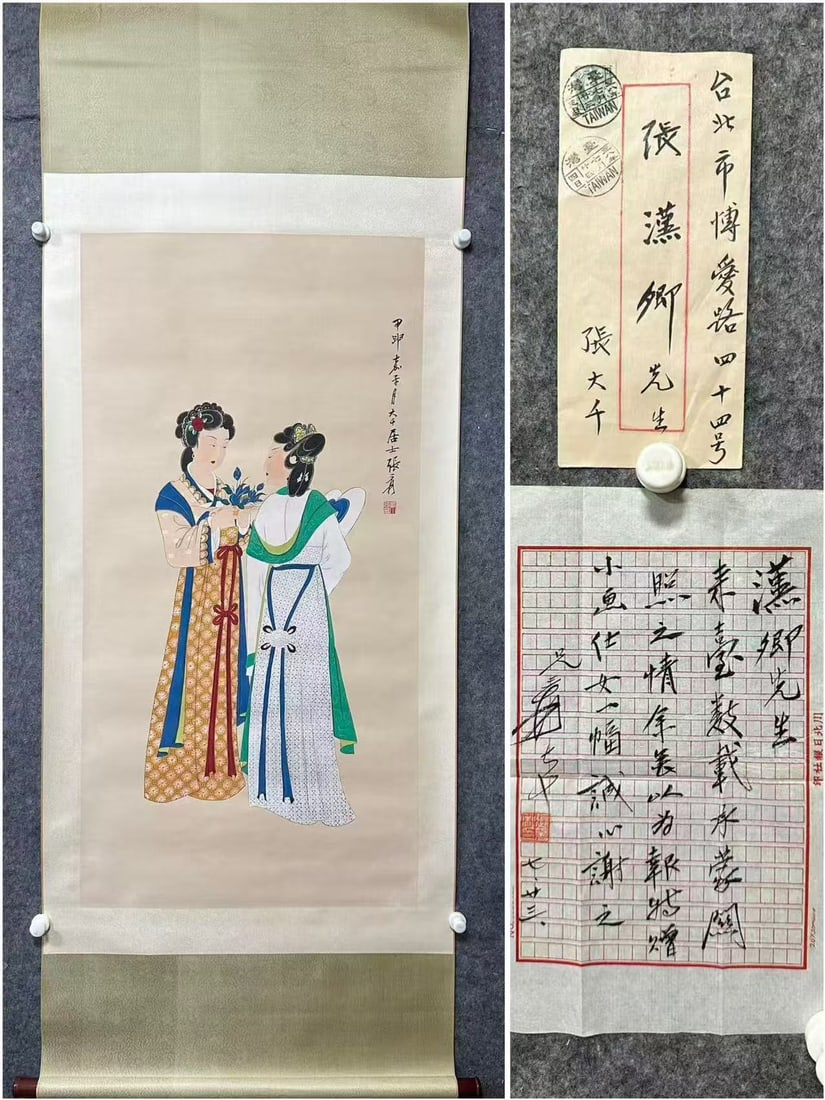 甲申嘉平月大千居士張爰
台北市博愛路四十四号
張漢卿先生
張大千
臺灣
TAIWAN
臺灣
TAIWAN
漢卿先生
来臺數載承蒙關
照之情余無以为報特贈
小画仕女一幅誠心謝之
七、廿三、
川北日報社印